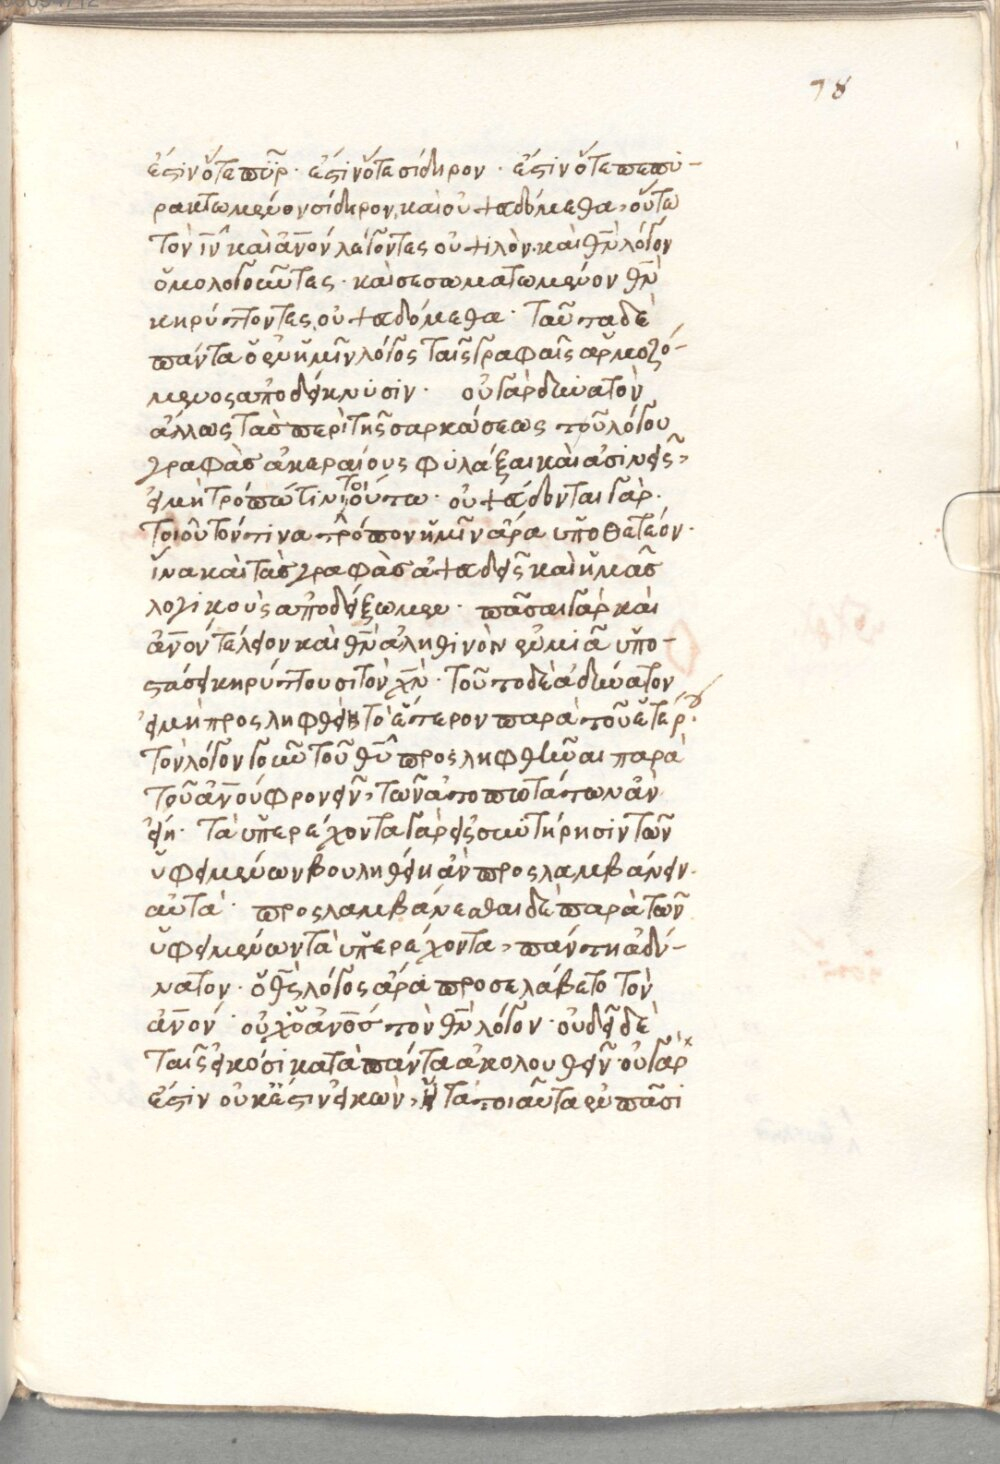 78
ἔστιν ὅτε πῦρ · ἔστιν ὅτε σίδηρον · ἔστιν ὅτε πεπυ-
ρακτωμένον σίδηρον, καὶ οὐ ψευδόμεθα, οὕτω
τὸν ἰν καὶ ἀνον λέγοντες οὐ ψιλὸν. καὶ θν λόγον
ὁμολογοῦντες · καὶ σεσωματωμένον θν
κηρύττοντες, οὐ ψευδόμεθα · ταῦτα δὲ
πάντα ὁ ἐν ἡμῖν λόγος ταῖς γραφαῖς ἁρμοζό-
μενος ἀποδείκνυσιν · οὐ γὰρ δυνατὸν
ἄλλως τὰς περὶ τῆς σαρκώσεως τοῦ λόγου
γραφὰς ἀκεραίους φυλάξαι καὶ ἀσινεῖς,
εἰ μὴ τρόπῳ τινὶ τοιούτῳ · οὐ ψεύδονται γάρ ·
τοιοῦτόν τινα τρόπον ἡμῖν ἄρα ὑποθετέον ·
ἵνα καὶ τὰς γραφὰς ἀψευδεῖς καὶ ἡμᾶς
λογικοὺς ἀποδείξωμεν · πᾶσαι γὰρ καὶ
ἀνον τέλειον καὶ θν ἀληθινὸν ἐν μιᾷ ὑπο-
στάσει κηρύττουσι τὸν χν · τοῦτο δὲ ἀδύνατον
εἰ μὴ προσληφθείη τὸ ἕτερον παρὰ τοῦ ἑτέρου ·
τὸν λόγον γοῦν τοῦ θυ προσληφθῆναι παρὰ
τοῦ ἀνου φρονεῖν, τῶν ἀτοπωτάτων ἂν
εἴη · τὰ ὑπερέχοντα γὰρ εἰς συντήρησιν τῶν
ὑφειμένων βουληθείη ἂν προσλαμβάνειν
αὐτά · προσλαμβάνεσθαι δὲ παρὰ τῶν
ὑφειμένων τὰ ὑπερέχοντα, πάντη ἀδύ-
νατον · ὁ θς λόγος ἄρα προσελάβετο τὸν
ἀνον · οὐχ ὁ ἀνος τὸν θν λόγον · οὐ δεῖ δὲ
ταῖς εἰκόσι κατὰ πάντα ἀκολουθεῖν · οὐ γάρ
ἐστιν οὐκέστιν εἰκὼν, ἢ τὰ τοιαῦτα ἐν πᾶσι